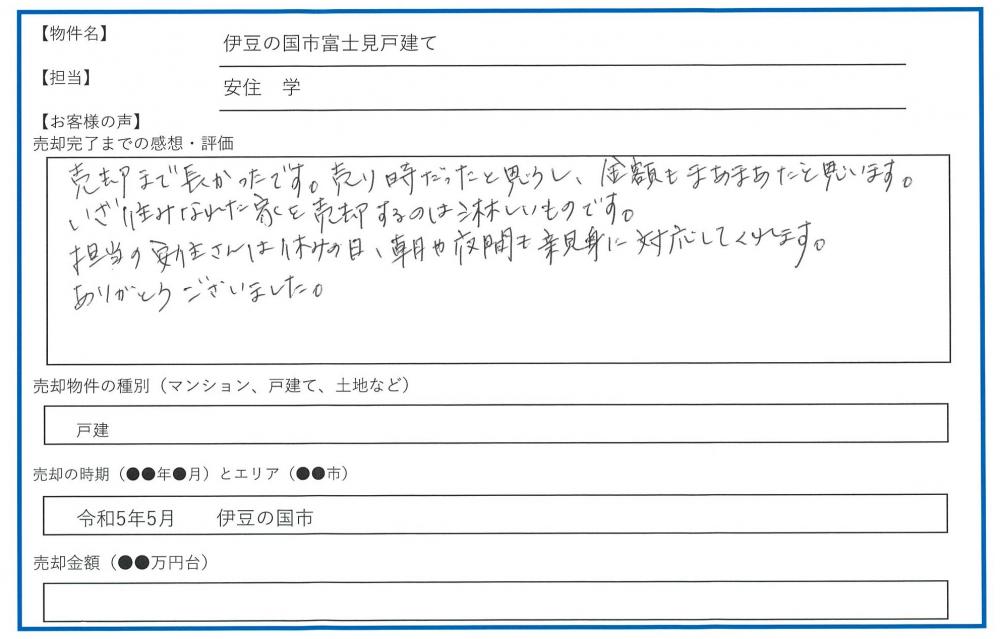 【物件名】
伊豆の国市富士見戸建て
【担当】
安住 学
【お客様の声】
売却完了までの感想・評価
売却まで長かったです。売り時だったと思うし、金額もまあまあだと思います。
いざ住みなれた家を売却するのは淋しいものです。
担当の安住さんは休みの日、朝や夜間も親身に対応してくれます。
ありがとうございました。
売却物件の種別（マンション、戸建て、土地など）
戸建
売却の時期（●●年●月）とエリア（●●市）
令和5年5月 伊豆の国市
売却金額（●●万円台）